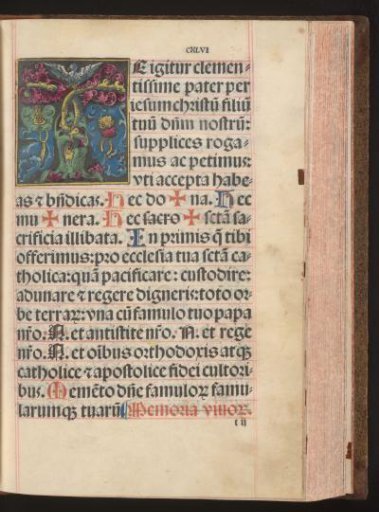 CXLVI
E igitur clemen-
tissime pater per
iesum christū filiū
tuū dn̄m nostrū:
supplices roga-
mus ac petimus:
vti accepta habe-
as ⁊ bn̄dicas. Hec do ✠ na. Hec
mu ✠ nera. Hec sacro ✠ sctā sa-
crificia illibata. In primis q̄ tibi
offerimus: pro ecclesia tua sctā ca-
tholica: quā pacificare: custodire:
adunare ⁊ regere digneris: toto or-
be terraꝝ: vna cū famulo tuo papa
nr̄o. N. et antistite nr̄o. N. et rege
nr̄o. N. et oībus orthodoxis atqꝫ
catholice ⁊ apostolice fidei cultori-
bus. Memēto dn̄e famuloꝝ famu-
larumqꝫ tuarū Memoria viuoꝝ.
t ij